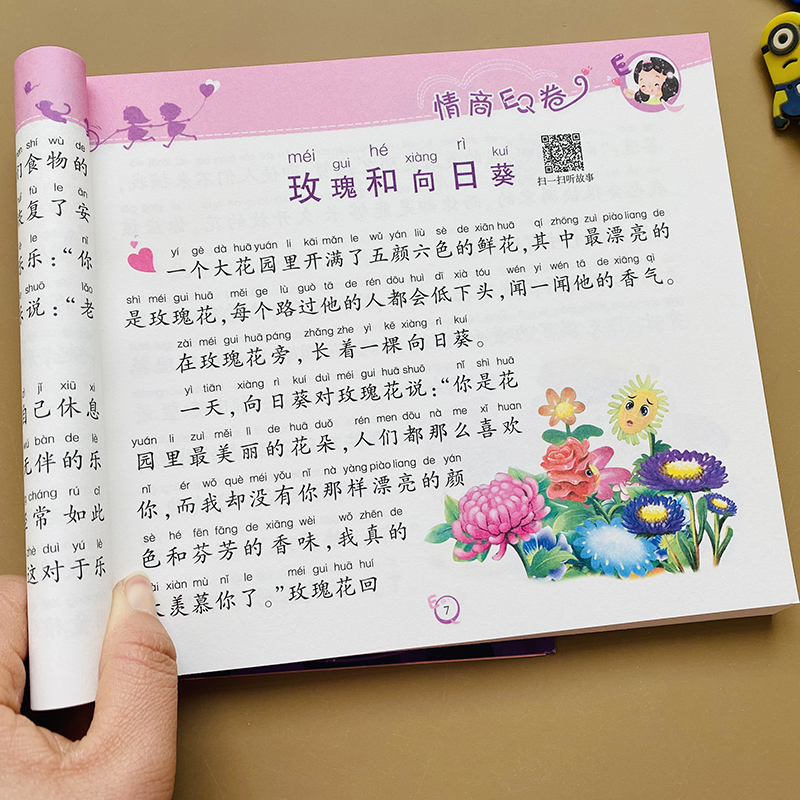 们食物的
恢复了安
乐乐：“你
乐说：“老
自己休息
玩伴的乐
常 如此
这对于乐
情商EQ卷
E Q
méi gui hé xiàng rì kuí
玫瑰和向日葵
扫一扫听故事
yí gè dà huā yuán li kāi mǎn le wǔ yán liù sè de xiān huā qí zhōng zuì piào liang de
一个大花园里开满了五颜六色的鲜花，其中最漂亮的
shì méi gui huā měi ge lù guò tā de rén dōu huì dī xià tóu wén yi wén tā de xiāng qì
是玫瑰花，每个路过他的人都会低下头，闻一闻他的香气。
zài méi gui huā páng zhǎng zhe yì kē xiàng rì kuí
在玫瑰花旁，长着一棵向日葵。
yì tiān xiàng rì kuí duì méi gui huā shuō nǐ shì huā
一天，向日葵对玫瑰花说：“你是花
yuán li zuì měi lì de huā duǒ rén men dōu nà me xǐ huan
园里最美丽的花朵，人们都那么喜欢
nǐ ér wǒ què méi yǒu nǐ nà yàng piào liang de yán
你，而我却没有你那样漂亮的颜
sè hé fēn fāng de xiāng wèi wǒ zhēn de
色和芬芳的香味，我真的
xiàn mù nǐ le méi gui huā huí
太羡慕你了。”玫瑰花回
E Q
7